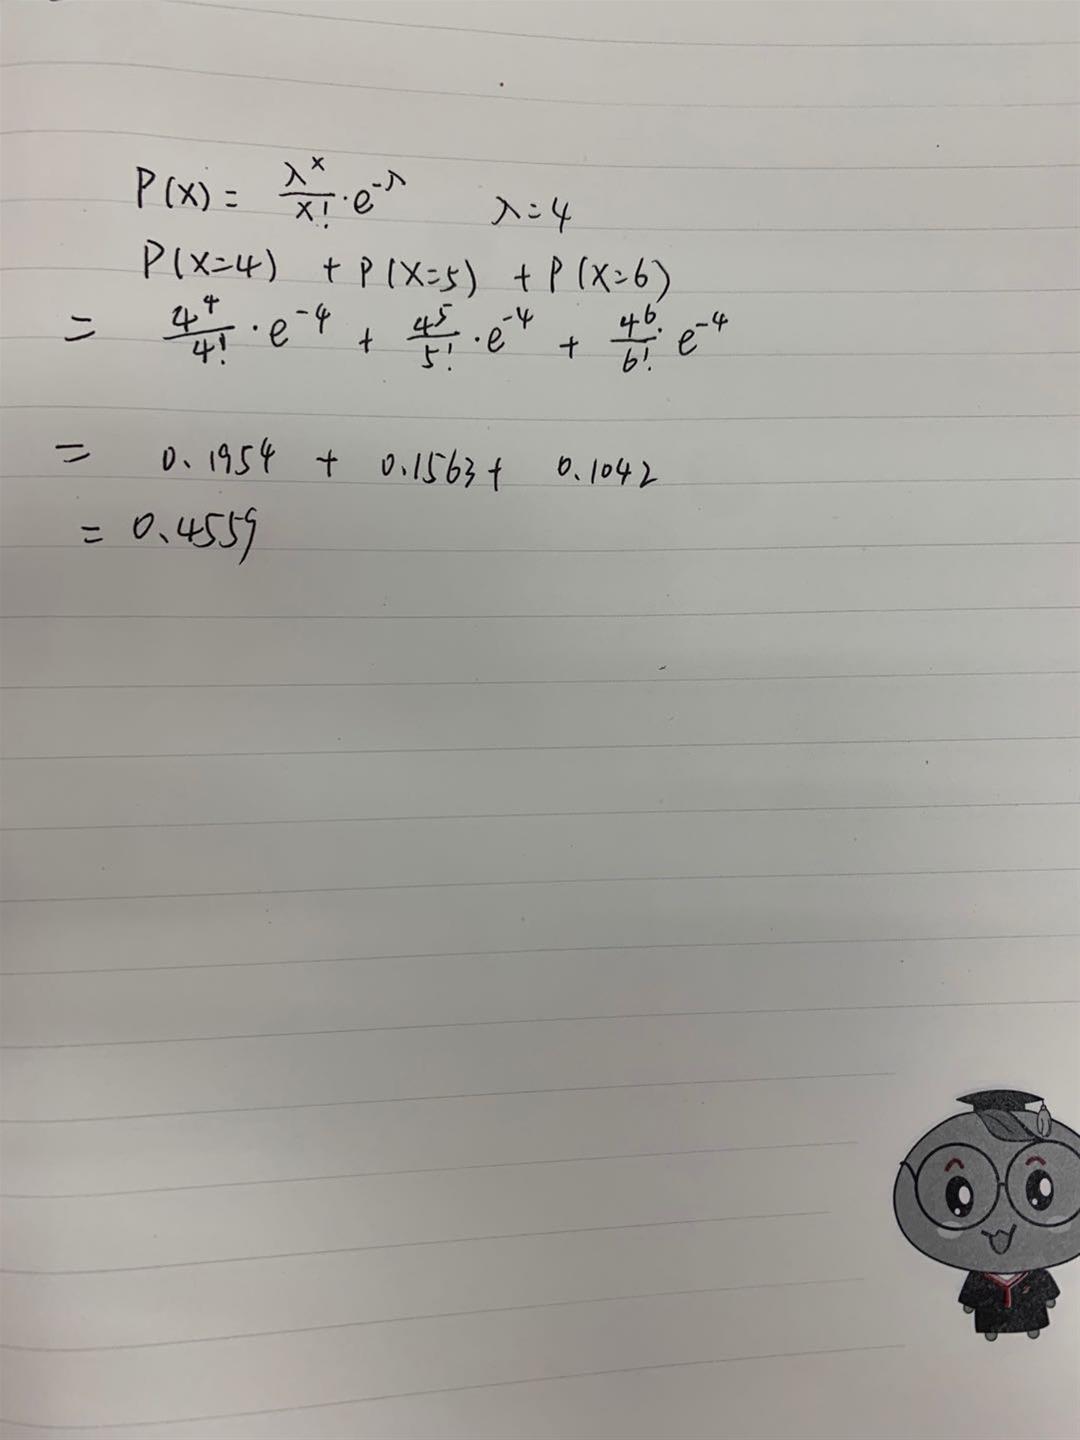 P(X) = λ^x/x! · e^-λ   λ=4
P(X=4) + P(X=5) + P(X=6)
= 4^4/4! · e^-4 + 4^5/5! · e^-4 + 4^6/6! · e^-4
= 0.1954 + 0.1563 + 0.1042
= 0.4559